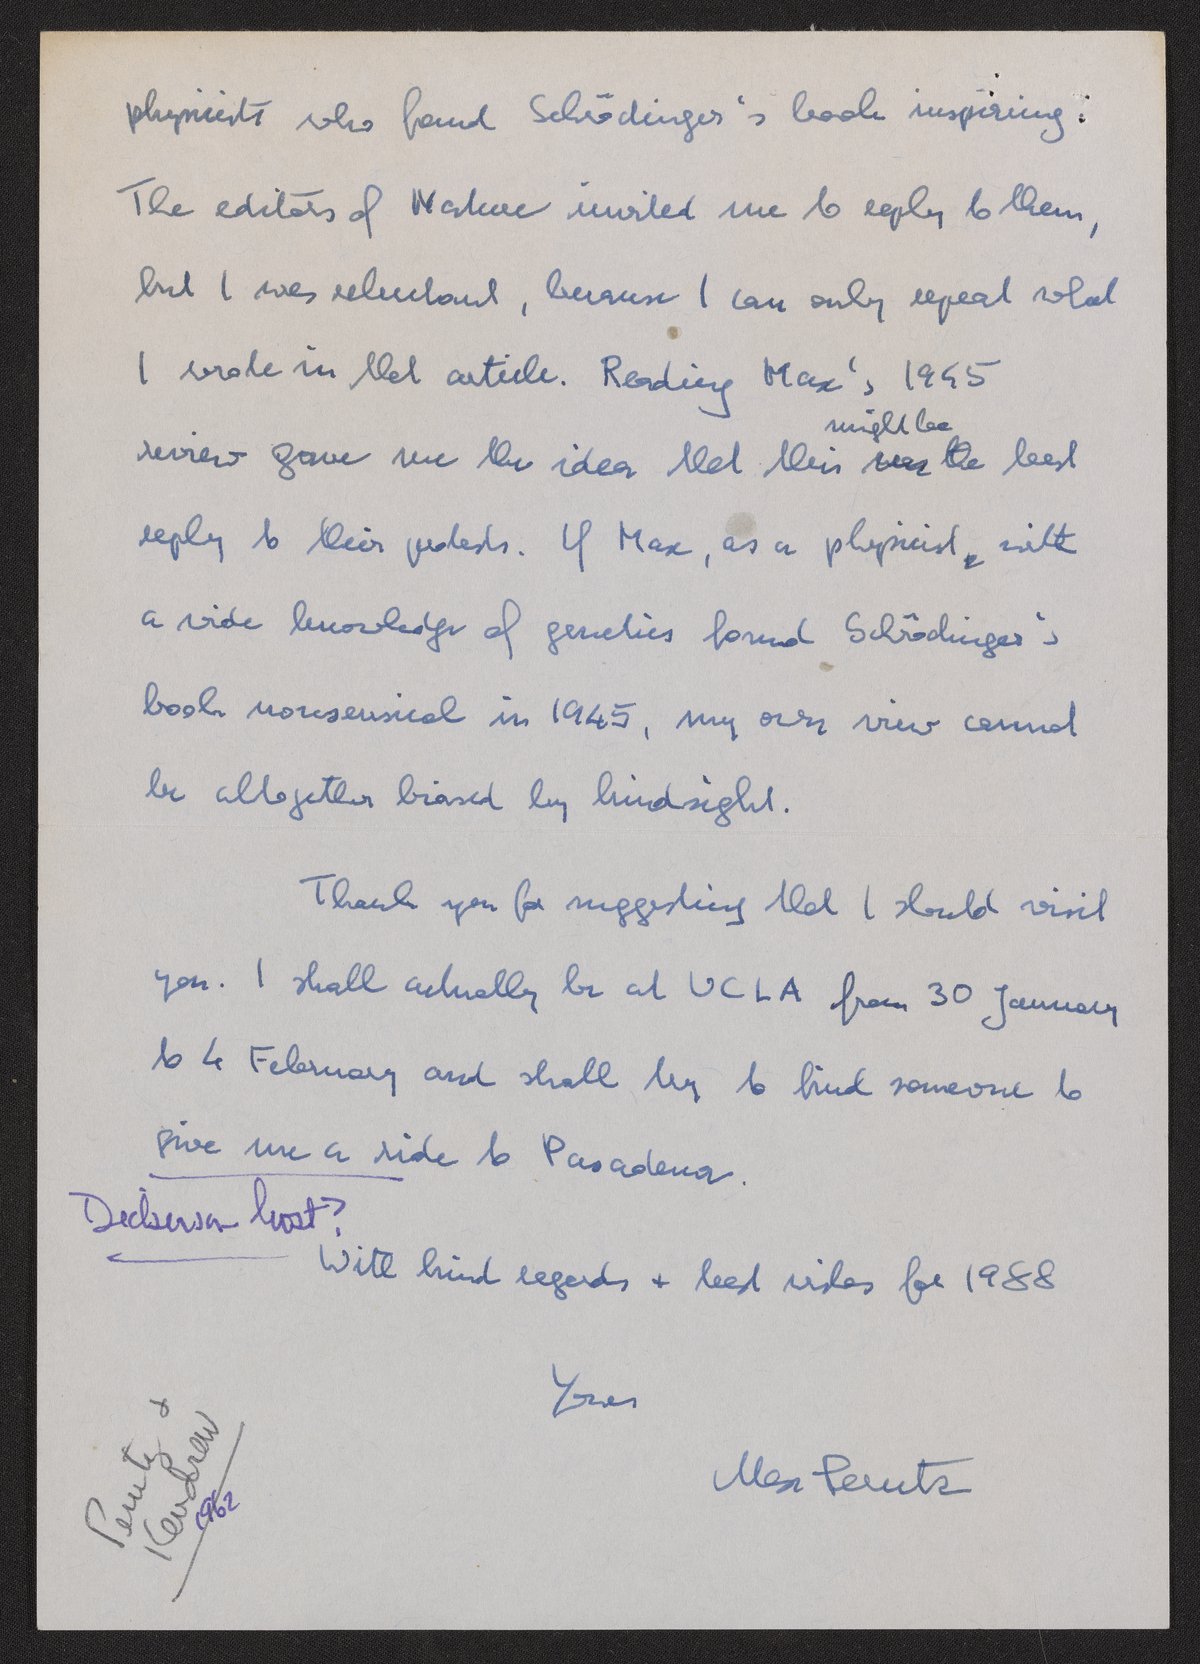 physicists who found Schrödinger's book inspiring.
The editors of Nature invited me to reply to them,
but I was reluctant, because I can only repeat what
I wrote in that article. Reading Max's 1945
might be
review gave me the idea that this was the best
reply to their protests. If Max, as a physicist, with
a wide knowledge of genetics found Schrödinger's
book nonsensical in 1945, my own view cannot
be altogether biased by hindsight.
Thank you for suggesting that I should visit
you. I shall actually be at UCLA from 30 January
to 4 February and shall try to find someone to
give me a ride to Pasadena.
Dickerson host?
With kind regards + best wishes for 1988
Yours
Max Perutz
Perutz &
Kendrew
1962